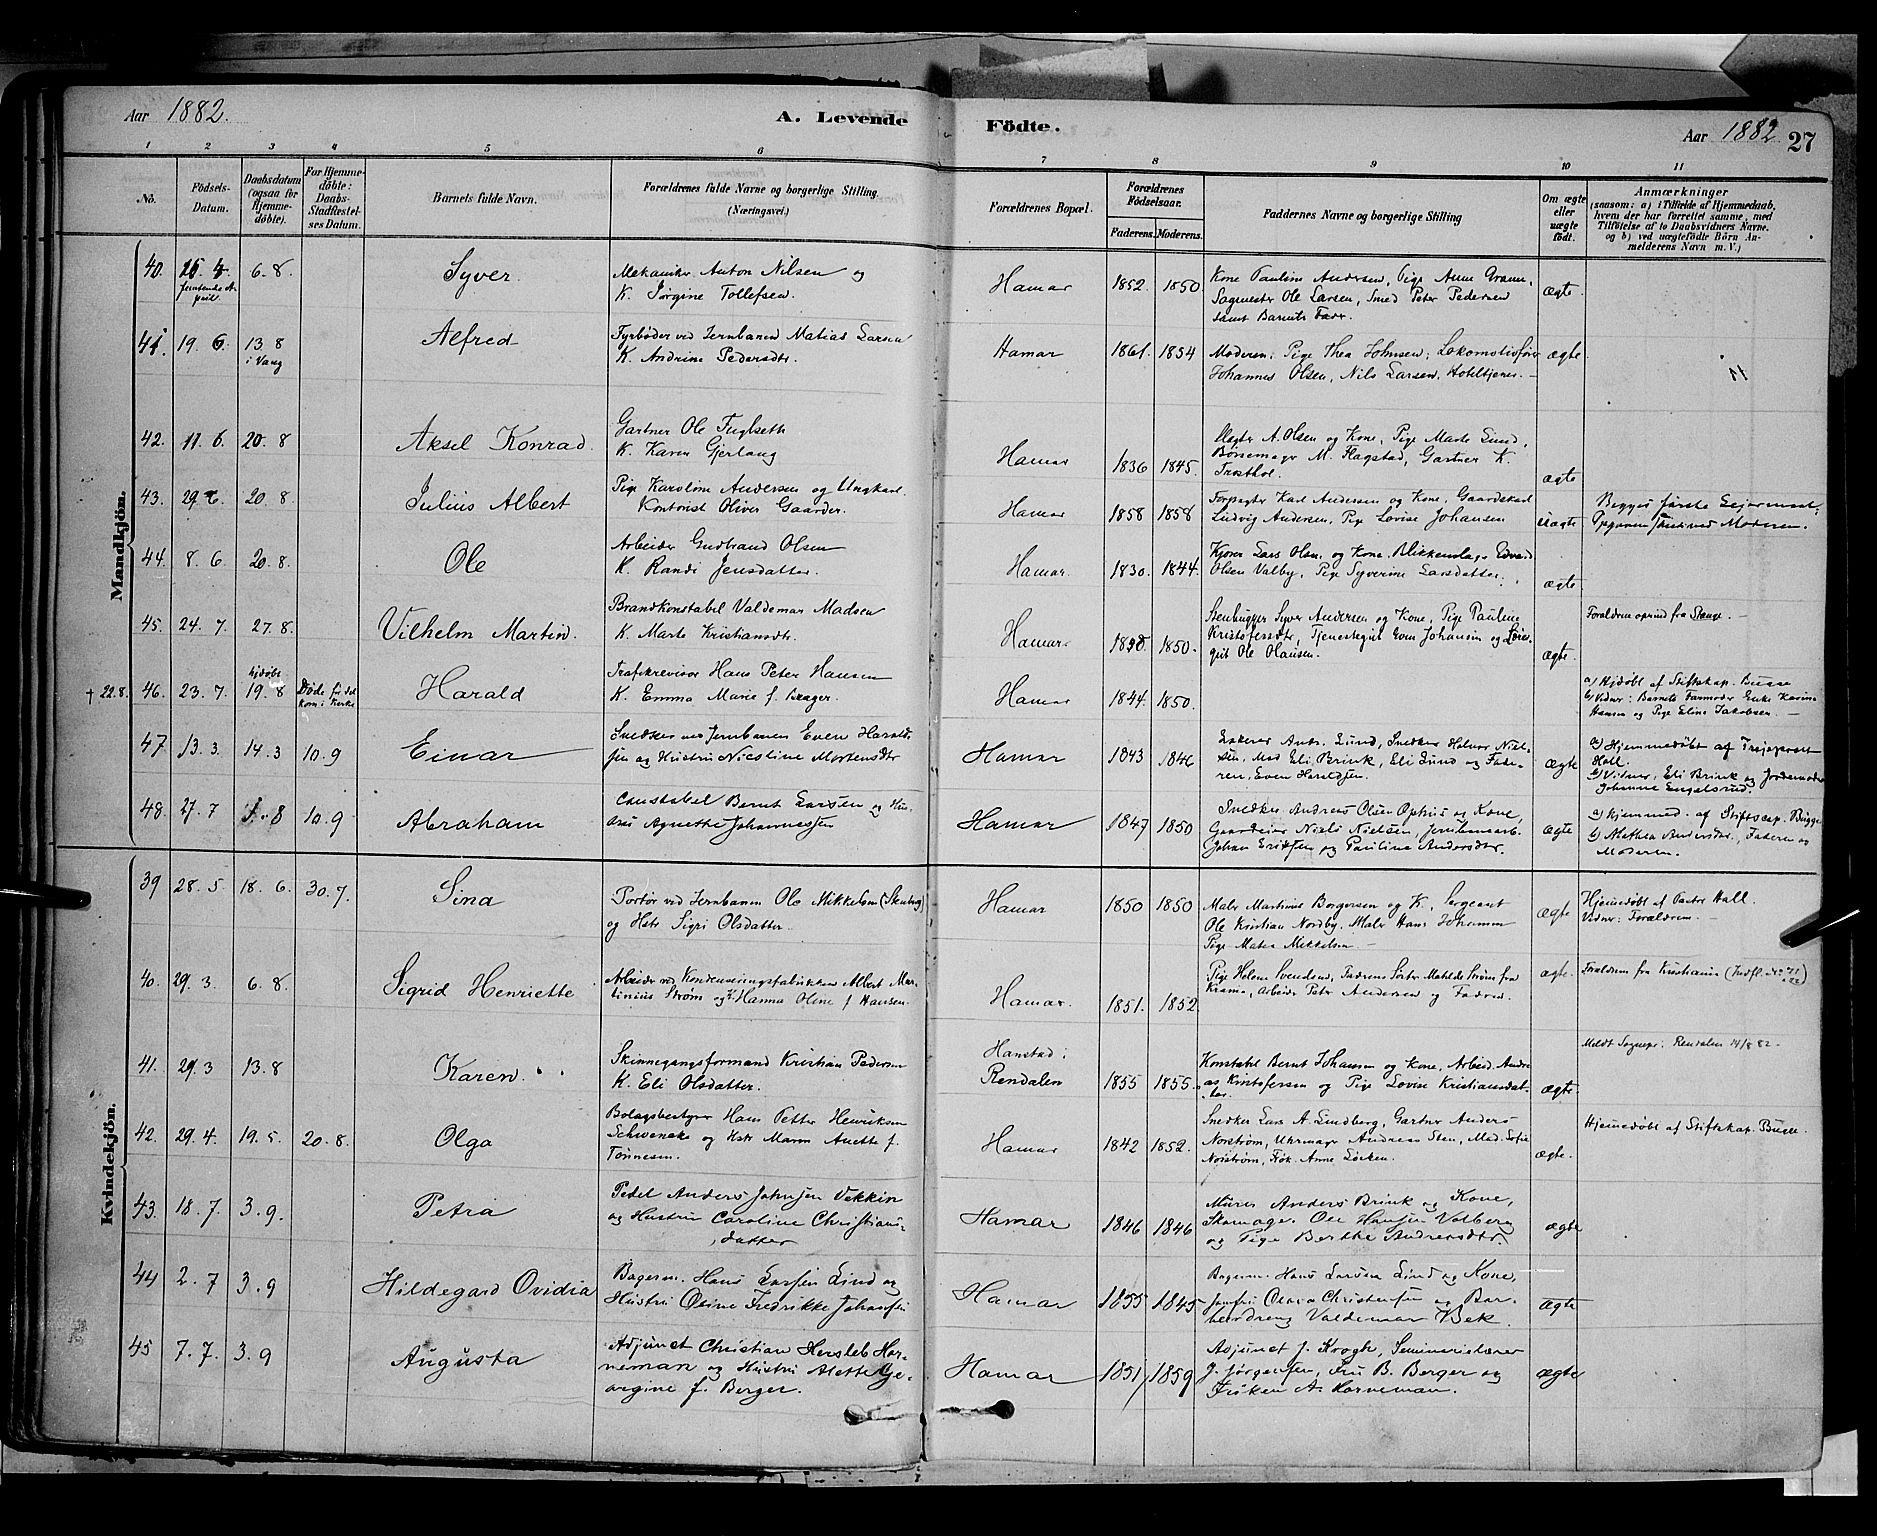 Aar 1882.
A. Levende Födte.
Aar 1882 27
1 2 3 4 5 6 7 8 9 10 11
No.
Födsels-Datum.
Daabsdatum (ogsaa for Hjemmedöbte).
For Hjemmedöbte: Daabs-Stadfæstelses Datum.
Barnets fulde Navn.
Forældrenes fulde Navne og borgerlige Stilling (Næringsvei.)
Forældrenes Bopæl.
Forældrenes Födselsaar.
Faderens. Moderens.
Faddernes Navne og borgerlige Stilling
Om ægte eller uægte födt.
Anmærkninger
(saasom: a) i Tilfælde af Hjemmedaab, hvem der har forrettet samme, med Tilföielse af to Daabsvidners Navne. og b) ved uægtefödte Börn Anmelderens Navn m. V.)
Mandkjön.
40. 15. 4 femtende April 6. 8. Syver.
Mekaniker Anton Nilsen og
K. Jørgine Tollefsen.
Hamar 1852. 1850
Kone Pauline Andersen, Pige Anne Gramm,
Sagmester Ole Larsen, Smed Peter Pedersen
samt Barnets Fader.
ægte
41. 19. 6. 13. 8 i Vang Alfred
Fyrbøder ved Jernbanen Matias Larsen
K. Andrine Pedersdtr.
Hamar 1861. 1854
Moderen; Pige Thea Johnsen; Lokomotivfører
Johannes Olsen, Nils Larsen, Hoteltjener. –
ægte
42. 11. 6. 20. 8 Aksel Konrad.
Gartner Ole Fuglseth
K. Karen Gjerlaug
Hamar 1836 1845.
A. Olsen og Kone, Pige Marte Lund,
Børsemager M. Flagstad, Gartner K.
ægte
43. 29. 6. 20. 8. Julius Albert
Pige Karoline Andersen og Ungkarl
Kontorist Oliver Gaarder.
Hamar 1858 1858
Forpagter Karl Andersen og Kone, Gaardskarl
Ludvig Andersen, Pige Lovise Johansen
uægte
Begges første Leiermaal,
Opgaven ved Moderen.
44. 8. 6. 20. 8. Ole
Arbeider Gudbrand Olsen
K. Randi Jensdatter.
Hamar. 1830. 1844.
Kjører Lars Olsen og Kone, Blikkenslager Edvard
Olsen Valby, Pige Syverine Larsdatter.
ægte
45. 24. 7. 27. 8. Vilhelm Martin.
Brandkonstabel Valdemar Madsen
K. Marte Kristiansdtr.
Hamar. 1850. 1850.
Stenhugger Syver Andersen og Kone, Pige Pauline
Kristofersdtr, Tjenestegut Even Johansen og
gut Ole Olausen.
ægte.
Forældrene oprind. fra Stange. –
† 22.8. 46. 23. 7. hjdøbt 19. 8 Døde før det kom i Kirke Harald
Trafikrevisor Hans Peter Hansen
K. Emma Marie f. Brager.
Hamar 1844. 1850.
a) Hjdøbt af Stiftskap. Bugge
b) Vidner: Barnets Farmoder Enke Karine
Hansen og Pige Elina Jakobsen. –
47 13. 3. 14. 3 10. 9 Einar
Snedker ved Jernbanen Even Harald-
sen og Hustru Nicoline Mortensdtr
Hamar 1843 1846
Andr. Lund, Snedker Helmer Niel-
sen, Mad. Eli Brink, Eli Lund og Fade-
ren, Even Haraldsen.
ægte
a) Hjemmedøbt af
Hall.
b) Vidner, Eli Brink og Jordemoder
Johanne Engelsrud.
48. 27. 7 1. 8 10. 9 Abraham
Constabel Bernt Larsen og Hu-
stru Agnethe Johannessen
Hamar 1847 1850
Snedker Andreas Olsen Ophus og Kone,
Gaardeier Niels Nielsen, Jernbanearb.
Johan Eriksen og Pauline Andersdtr.
ægte
a) hjemmed. af Stiftscap. Bugge
b) Alethea Andersdtr., Faderen og
Moderen.
Kvindekjön.
39 28. 5 18. 6. 30. 7. Sina
Portør ved Jernbanen Ole Mikkelsen
og Hstr Sigri Olsdatter.
Hamar 1850 1850
Maler Martinus Borgersen og K., Sergeant
Ole Kristian Nordby, Maler Hans Johansen
Pige Matea Mikkelsen. –
ægte
Hjemmedøbt af Pastor Hall.
Vidner: Forældrene. –
40. 29. 3. 6. 8. Sigrid Henriette
Arbeider ved Kondenseringsfabrikken Albert Mar-
tinius Strøm og K. Hanna Oline f. Hansen.
Hamar. 1851. 1852.
Pige Helene Svendsen, Faderens Søster Matilde Strøm fra
Krania, Arbeider Peter Andersen og Faderen.
ægte.
Forældrene fra Kristiania
41. 29. 3 13. 8 Karen.
Skinnegangsformand Kristian Pedersen
K. Eli Olsdatter.
Hanstad i
Rendalen 1855 1855.
Konstabel Bernt Johansen og Kone, Arbeid. Andre-
as Kristofersen og Pige Lovise Kristiansdat-
ter.
ægte.
Meldt Sognepr. i Rendalen 14/8 82. –
42. 29. 4. 19. 5. 20. 8. Olga
Bolagsbestyrer Hans Petter Henriksen
Schwencke og Hstr Maren Anette f.
Tønnesen.
Hamar 1842 1852.
Snedker Lars A. Lundberg, Gartner Anders
Norstrøm, Uhrmager Andreas Sten, Mad. Sofie
Norstrøm, Frøk. Anne Lørken.
ægte.
Hjemmedøbt af Stiftskap. Bugge.
43. 18. 7. 3. 9. Petra
Pedel Anders Johnsen Vekkin
og Hustru Caroline Christians-
datter
Hamar 1846 1846
Murer Anders Brink og Kone,
Skomager Ole Hansen Volberg
og Pige Berthe Andersdtr.
ægte
44 2. 7 3. 9 Hildegard Ovidia
Bagerm. Hans Larsen Lind og
Hustru Osine Fredrikke Johansen
Hamar 1855 1845
Bagerm. Hans Larsen Lind og Kone,
Jomfru Olava Christensen og Bar-
berdreng Valdemar Bek.
ægte
45 7. 7. 3. 9 Augusta
Adjunct Christian Hersleb Hor-
neman og Hustru Alette Ge-
orgine f. Berger.
Hamar 1851 1859
Adjunct J. Krogh, Seminarielærer
J. Jørgensen, Fru B. Berger og
Frøken A. Horneman.
ægte